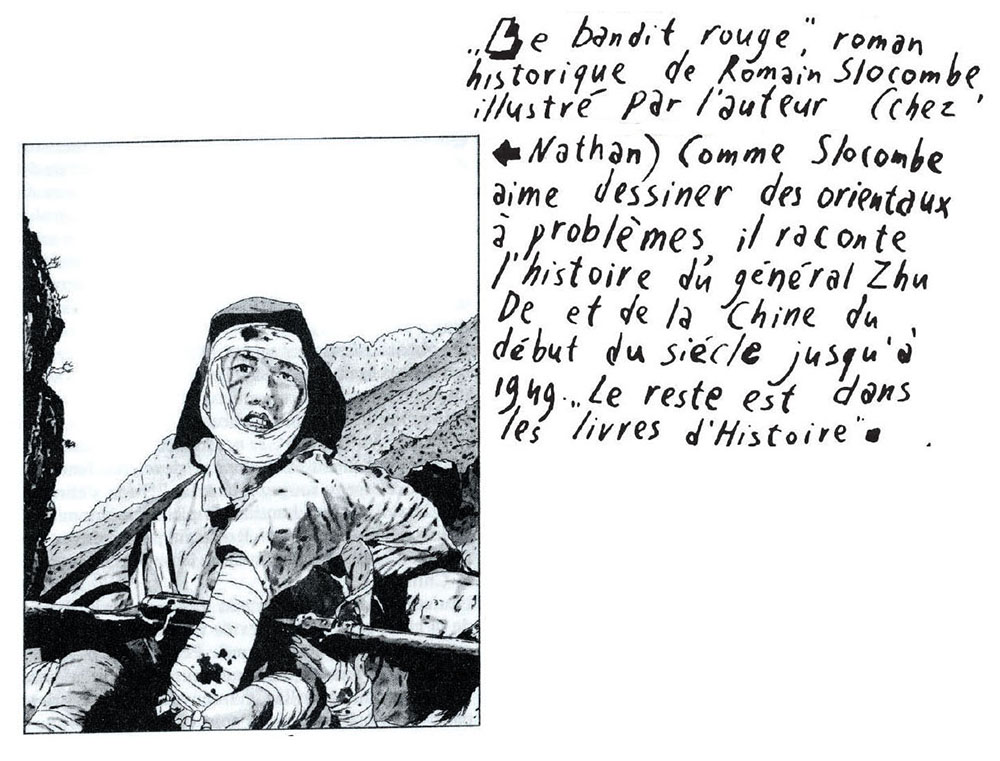 „Le bandit rouge," roman
historique de Romain Slocombe,
illustré par l'auteur (chez
← Nathan) Comme Slocombe
aime dessiner des orientaux
à problèmes, il raconte
l'histoire du général Zhu
De et de la Chine du
début du siécle jusqu'à
1949. „Le reste est dans
les livres d'Histoire"